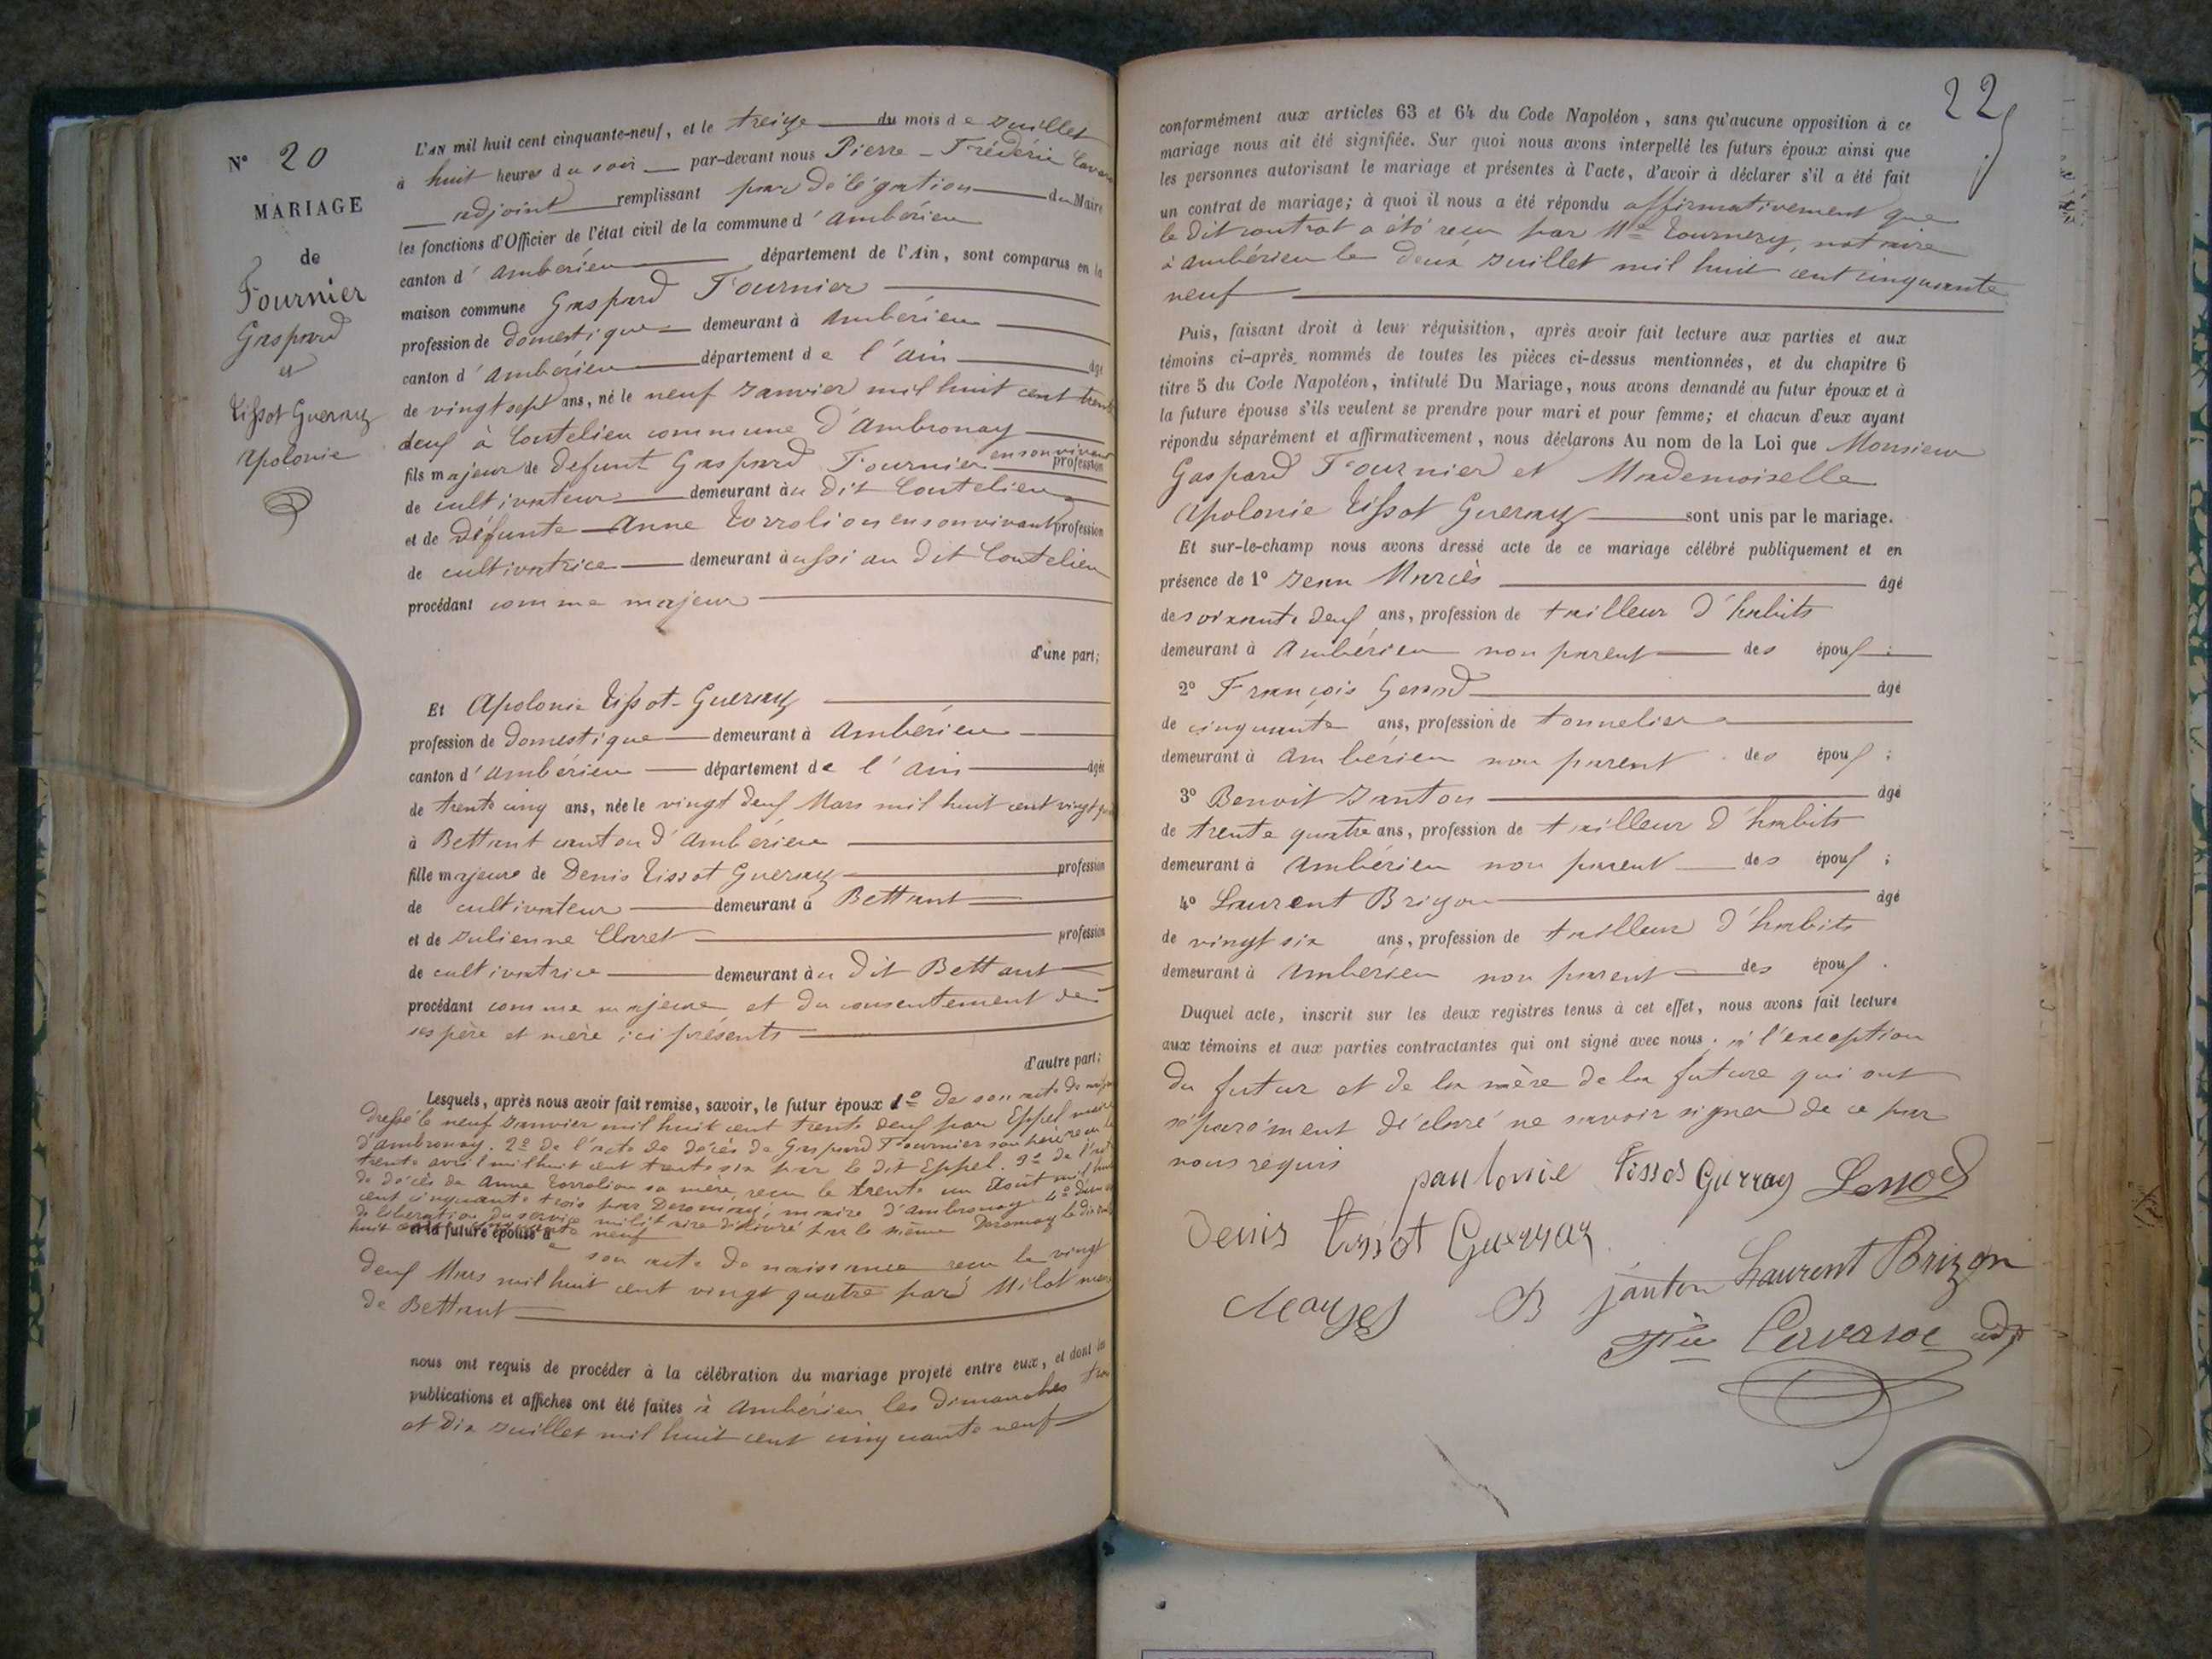 N° 20
MARIAGE
de
Fournier
Gaspard
et
Tissot Guerraz
Apolonie
L'AN mil huit cent cinquante-neuf, et le treize du mois de Juillet
à huit heures du soir par-devant nous Pierre-Frédéric
adjoint remplissant par délégation du Maire
les fonctions d'Officier de l'état civil de la commune d'Ambérieu
canton d'Ambérieu département de l'Ain, sont comparus en la
maison commune Gaspard Fournier
profession de domestique demeurant à Ambérieu
canton d'Ambérieu département de l'Ain âgé
de vingt sept ans, né le neuf Janvier mil huit cent trente
deux à Coutelieu commune d'Ambronay
fils majeur de defunt Gaspard Fournier en son vivant profession
de cultivateur demeurant au dit Coutelieu
et de Défunte Anne Torrolion en son vivant profession
de cultivatrice demeurant aussi au dit Coutelieu
procédant comme majeur
d'une part;
Et Apolonie Tissot-Guerraz
profession de domestique demeurant à Ambérieu
canton d'Ambérieu département de l'Ain âgée
de trente cinq ans, née le vingt deux Mars mil huit cent vingt
à Bettant canton d'Ambérieu
fille majeure de Denis Tissot Guerraz profession
de cultivateur demeurant à Bettant
et de Julienne Claret profession
de cultivatrice demeurant au dit Bettant
procédant comme majeure et du consentement de
ses père et mère ici présents
d'autre part;
Lesquels, après nous avoir fait remise, savoir, le futur époux 1° de son acte de
Dressé le neuf Janvier mil huit cent trente deux par Eppel maire
d'Ambronay. 2° de l'acte de décès de Gaspard Fournier son père reçu le
trente avril mil huit cent trente six par le dit Eppel. 3° de l'acte
de décès de Anne Torrolion sa mère, reçu le trente un Août mil huit
cent cinquante trois par Desronay, maire d'Ambronay 4°
de libération du service militaire délivré par le même Desronay le
huit cent cinquante neuf
et la future épouse de son acte de naissance reçu le vingt
deux Mars mil huit cent vingt quatre par Milot maire
de Bettant
nous ont requis de procéder à la célébration du mariage projeté entre eux, et dont les
publications et affiches ont été faites à Ambérieu les dimanches trois
et dix Juillet mil huit cent cinquante neuf
22
conformément aux articles 63 et 64 du Code Napoléon, sans qu'aucune opposition à ce
mariage nous ait été signifiée. Sur quoi nous avons interpellé les futurs époux ainsi que
les personnes autorisant le mariage et présentes à l'acte, d'avoir à déclarer s'il a été fait
un contrat de mariage; à quoi il nous a été répondu affirmativement que
le dit contrat a été reçu par Me Tournery, notaire
à Ambérieu le deux Juillet mil huit cent cinquante
neuf
Puis, faisant droit à leur réquisition, après avoir fait lecture aux parties et aux
témoins ci-après nommés de toutes les pièces ci-dessus mentionnées, et du chapitre 6
titre 5 du Code Napoléon, intitulé Du Mariage, nous avons demandé au futur époux et à
la future épouse s'ils veulent se prendre pour mari et pour femme; et chacun d'eux ayant
répondu séparément et affirmativement, nous déclarons Au nom de la Loi que Monsieur
Gaspard Fournier et Mademoiselle
Apolonie Tissot Guerraz sont unis par le mariage.
Et sur-le-champ nous avons dressé acte de ce mariage célébré publiquement et en
présence de 1° Jean âgé
de soixante deux ans, profession de tailleur d'habits
demeurant à Ambérieu non parent des époux;
2° François âgé
de cinquante ans, profession de tonnelier
demeurant à Ambérieu non parent des époux;
3° Benoit Janton âgé
de trente quatre ans, profession de tailleur d'habits
demeurant à Ambérieu non parent des époux;
4° Laurent Brizon âgé
de vingt six ans, profession de tailleur d'habits
demeurant à Ambérieu non parent des époux.
Duquel acte, inscrit sur les deux registres tenus à cet effet, nous avons fait lecture
aux témoins et aux parties contractantes qui ont signé avec nous. à l'exception
du futur et de la mère de la future qui ont
séparément déclaré ne savoir signer de ce par
nous requis
paulonie Tissot Guerray
Denis tissot Guerraz
B janton Laurent Brizon
adjt